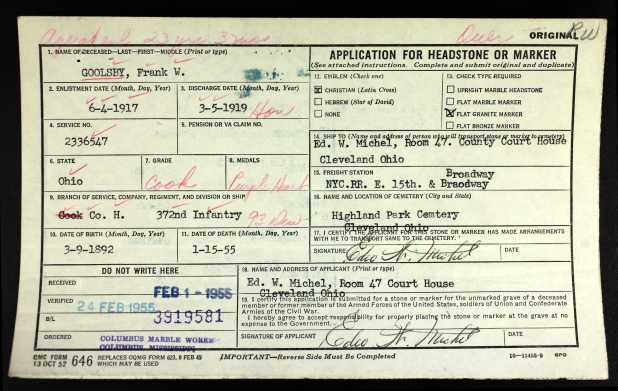 Over
ORIGINAL
1. NAME OF DECEASED—LAST—FIRST—MIDDLE (Print or type)
GOOLSBY, Frank W.
2. ENLISTMENT DATE (Month, Day, Year)
6-4-1917
3. DISCHARGE DATE (Month, Day, Year)
3-5-1919 Hon
4. SERVICE NO.
2336547
5. PENSION OR VA CLAIM NO.
6. STATE
Ohio
7. GRADE
Cook
8. MEDALS
Purple Heart
9. BRANCH OF SERVICE, COMPANY, REGIMENT, AND DIVISION OR SHIP
Cook Co. H. 372nd Infantry 93 Div
10. DATE OF BIRTH (Month, Day, Year)
3-9-1892
11. DATE OF DEATH (Month, Day, Year)
1-15-55
DO NOT WRITE HERE
RECEIVED
FEB 1 - 1955
VERIFIED
24 FEB 1955
B/L
3919581
ORDERED
COLUMBUS MARBLE WORKS
COLUMBUS, MISSISSIPPI
APPLICATION FOR HEADSTONE OR MARKER
(See attached instructions. Complete and submit original and duplicate)
12. EMBLEM (Check one)
CHRISTIAN (Latin Cross)
HEBREW (Star of David)
NONE
13. CHECK TYPE REQUIRED
UPRIGHT MARBLE HEADSTONE
FLAT MARBLE MARKER
FLAT GRANITE MARKER
FLAT BRONZE MARKER
14. SHIP TO (Name and address of person who will transport stone or marker to cemetery)
Ed. W. Michel, Room 47. County Court House
Cleveland Ohio
15. FREIGHT STATION
Broadway
NYC.RR. E. 15th. & Braodway
16. NAME AND LOCATION OF CEMETERY (City and State)
Highland Park Cemtery
Cleveland Ohio
17. I CERTIFY THE APPLICANT FOR THIS STONE OR MARKER HAS MADE ARRANGEMENTS
WITH ME TO TRANSPORT SAME TO THE CEMETERY.
SIGNATURE
DATE
18. NAME AND ADDRESS OF APPLICANT (Print or type)
Ed. W. Michel, Room 47 Court House
Cleveland Ohio
19. I certify this application is submitted for a stone or marker for the unmarked grave of a deceased
member or former member of the Armed Forces of the United States, soldiers of Union and Confederate
Armies of the Civil War.
I hereby agree to accept responsibility for properly placing the stone or marker at the grave at no
expense to the Government.
SIGNATURE OF APPLICANT
DATE
QMC FORM
13 OCT 52 646 REPLACES OQMG FORM 623, 8 FEB 49
WHICH MAY BE USED
IMPORTANT—Reverse Side Must Be Completed
GPO